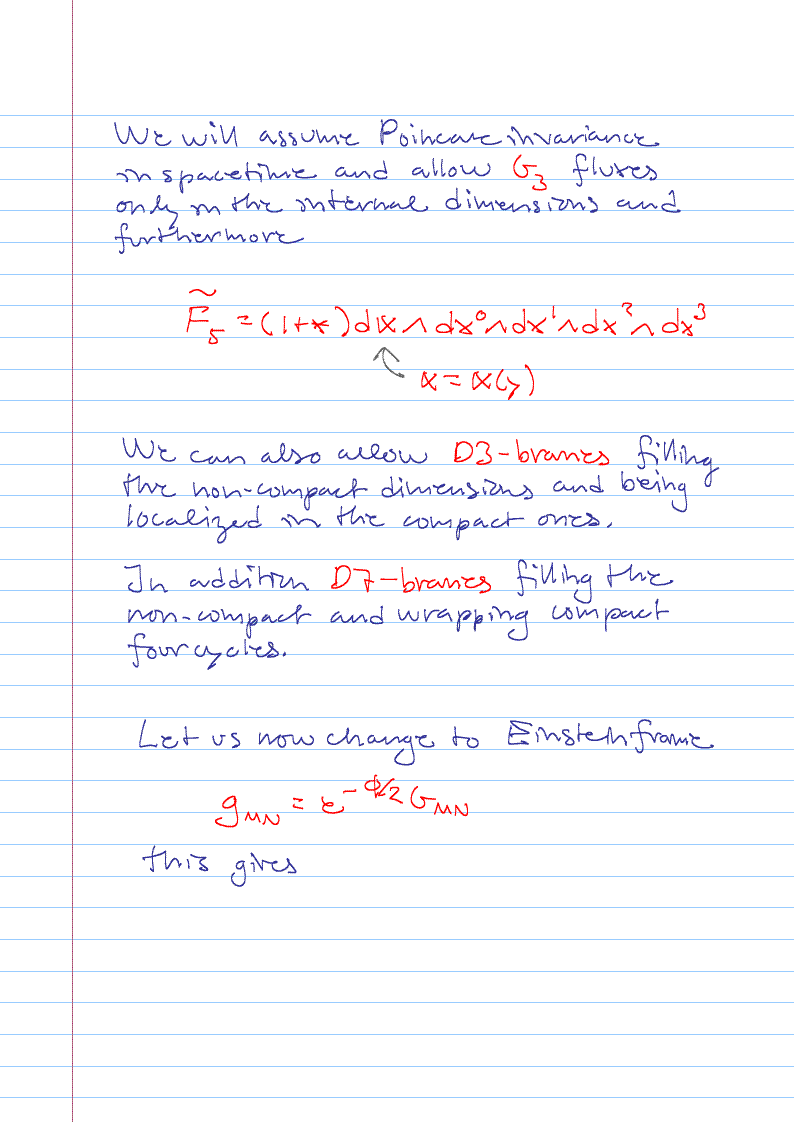 We will assume Poincare invariance
in spacetime and allow G₃ fluxes
only in the internal dimensions and
furthermore
F̃₅ = (1+*)dα∧dx⁰∧dx¹∧dx²∧dx³
α = α(y)
We can also allow D3-branes filling
the non-compact dimensions and being
localized in the compact ones.
In addition D7-branes filling the
non-compact and wrapping compact
four cycles.
Let us now change to Einstein frame
g_MN = e^{-ϕ/2} G_MN
this gives